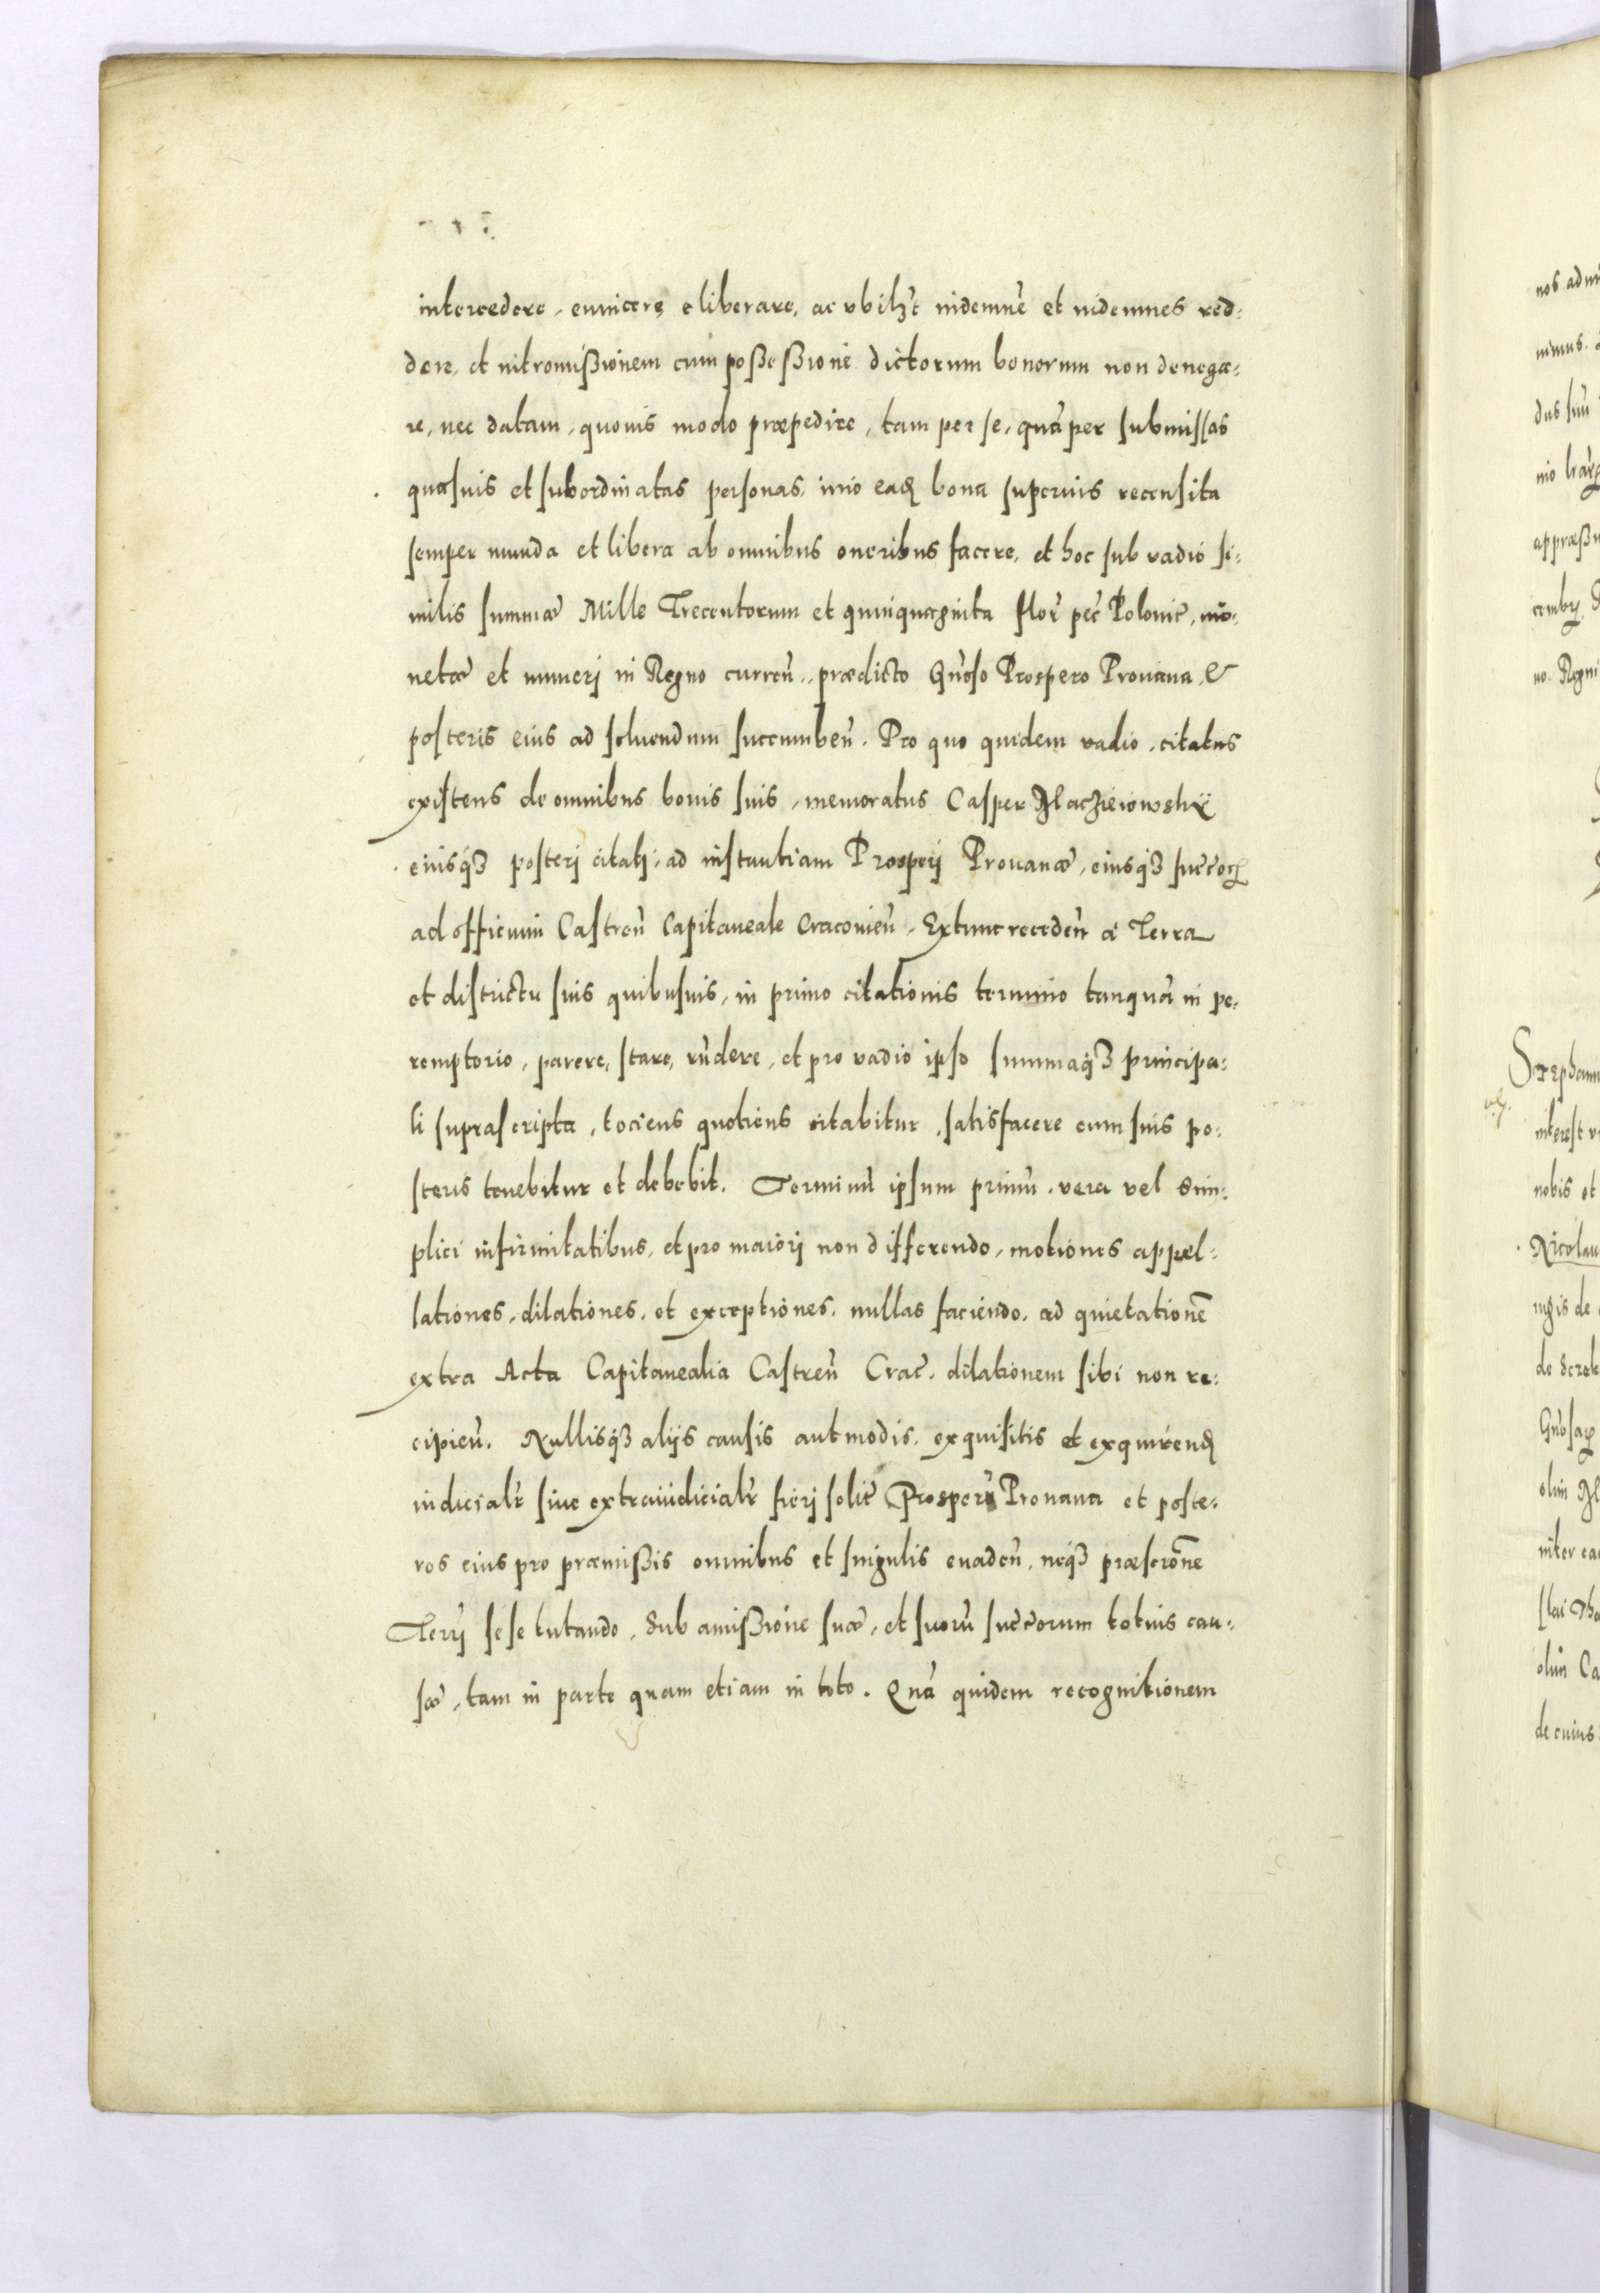 intercedere, euincere, eliberare, ac vbilȝt indemnē et indemnes red-
dere, et intromißionem cum poßeßione dictorum bonorum non denega-
re, nec datam, quouis modo præpedire, tam per se, quā per submissas
quasuis et subordinatas personas, imo eadꝫ bona superius recensita
semper munda et libera ab omnibus oneribus facere, et hoc sub vadio si-
milis summæ Mille Trecentorum et quinquaginta flor pec̄ Polonic̄, mo-
netæ et numeri in Regno curreñ, prædicto Gn̄oso Prospero Prouana, &
posteris eius ad soluendum succumbeñ. Pro quo quidem vadio, citatus
existens de omnibus bonis suis, memoratus Casper
eiusqȝ posteri citati, ad instantiam Prosperi Prouanæ, eiusqȝ succorꝝ
ad officium Castreñ Capitaneale Cracouieñ, Extunc recedeñ a Terra
et districtu suis quibusuis, in primo citationis termino tanquā in pe-
remptorio, parere, stare, rñdere, et pro vadio ipso summaqȝ principa-
li suprascripta, tociens quotiens citabitur, satisfacere cum suis po-
steris tenebitur et debebit. Terminū ipsum primū, vera vel sim-
plici infirmitatibus, et pro maiori non differendo, motiones appel-
lationes, dilationes, et exceptiones, nullas faciendo, ad quietationē
extra Acta Capitanealia Castreñ Crac̄, dilationem sibi non re-
cipieñ. Nullisqȝ alijs causis aut modis, exquisitis et exquirendꝫ
iudicialr siue extraiudicialr fieri solit̄ Prosperū Prouana et poste-
ros eius pro præmißis omnibus et singulis euadeñ, neqȝ præscrōne
Terrj sese tutando, sub amißione suæ, et suorū succorum totius cau-
sæ, tam in parte quam etiam in toto. Quā quidem recognitionem
nos
minus.
dus suū
no. Regni
Stephanu
interest
nobis et
Nicolau
de
Gn̄osaꝝ
olim
inter ea
olim Ca
de cuius